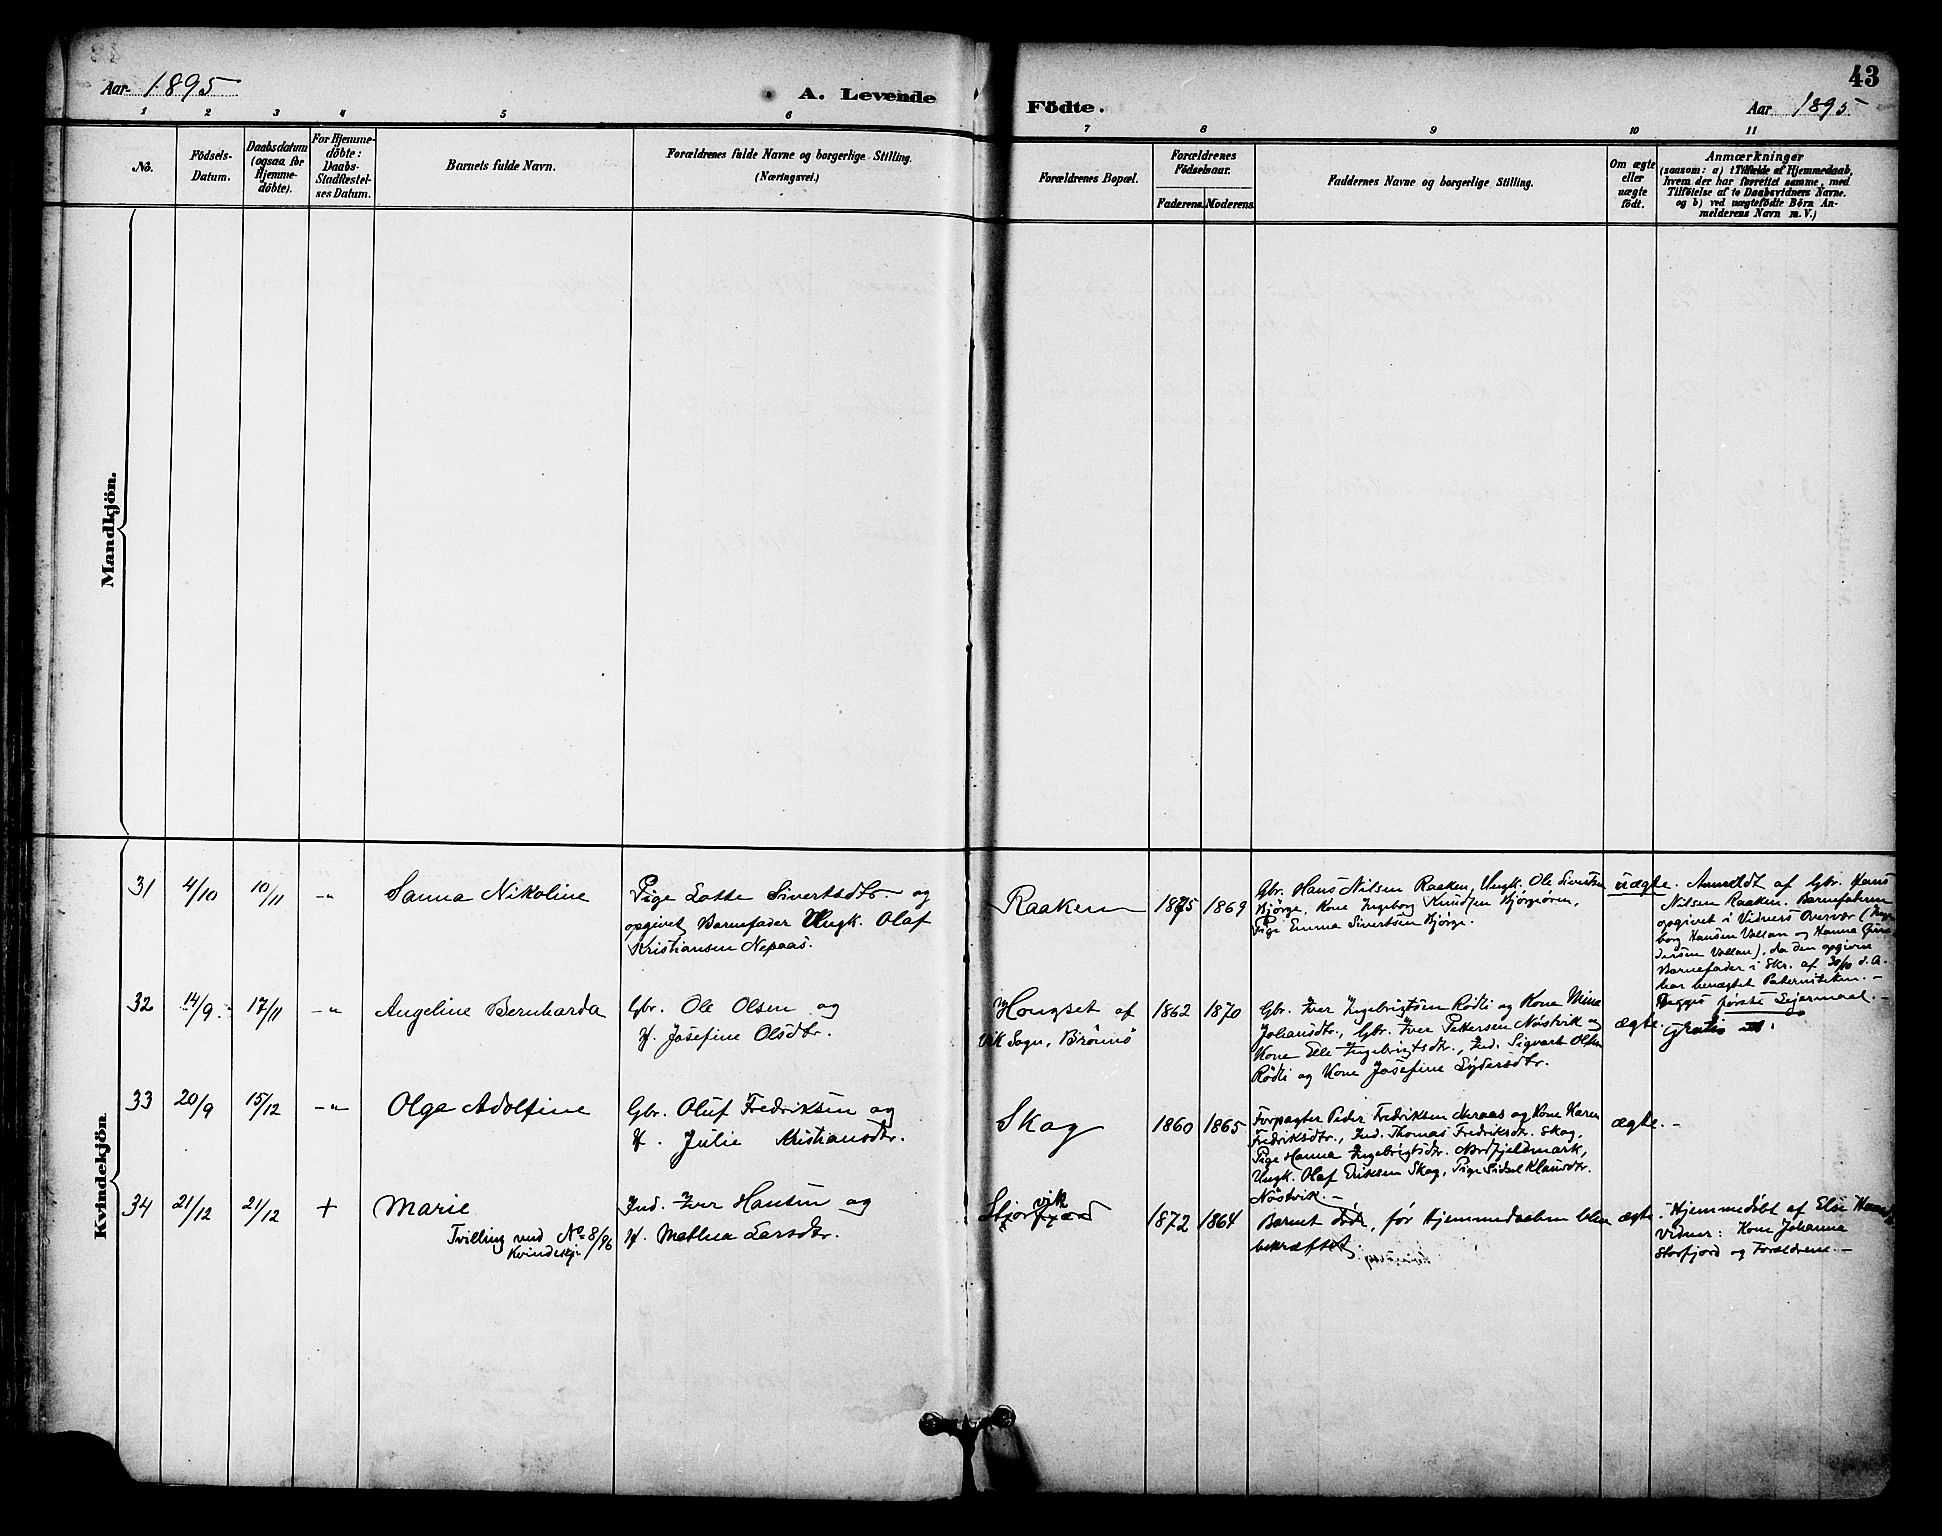 43
Aar 1895
A. Levende Födte.
Aar 1895
1 2 3 4 5 6 7 8 9 10 11
No.
Födsels-
Datum.
Daabsdatum
(ogsaa for
Hjemme-
döbte).
For Hjemme-
döbte:
Daabs-
Stadfestel-
ses Datum.
Barnets fulde Navn.
Forældrenes fulde Navne og borgerlige Stilling.
(Næringsvei.)
Forældrenes Bopæl.
Forældrenes
Födselsaar.
Faderens. Moderens.
Faddernes Navne og borgerlige Stilling.
Om ægte
eller
uægte
födt.
Anmærkninger
(saasom: a) i Tilfælde af Hjemmedaab,
hvem der har forrettet samme, med
Tilföielse af to Daabsvidners Navne.
og b) ved uægtefödte Börn An-
melderens Navn m. V.)
Mandkjön.
Kvindekjön
31 4/10 10/11 -"- Sanna Nikoline
Pige Lotte Sivertsdtr. og
opgivet Barnefader Ungk. Olaf
Kristiansen Nepaas.
Raaken 1875 1869
Gbr. Hans Nilsen Raaken, Ungk. Ole Sivertsen
Bjørge, Kone Ingeborg Knudsen Bjørgeøren,
Pige Emma Sivertsen Bjørge.
uægte.
Anmeldt af Gbr. Hans
Nilsen Raaken. Barnefaderen
opgivet i Vidners Overvær
borg Hansen Vollan og Hanna
Vollan), da den opgivne
Barnefader i Skr. af 30/10 d. A.
har benægtet Paterniteten. -
Begges første Leiermaal. -
32 14/9 17/11 -"- Angeline Bernharda
Gbr. Ole Olsen og
H. Josefine Olsdtr.
Hongset af
Vik Sogn, Brønnø
1862 1870
Gbr. Iver Ingebrigtsen Rødli og Kone Mine
Johansdtr., Gbr. Iver Pettersen Nøstvik og
Kone Elle Ingebrigtsdtr., Ind. Sigvart Olsen
Rødli og Kone Josefine Sydersdtr.
ægte.
Gratis
33 20/9 15/12 -"- Olga Adolfine
Gbr. Oluf Fredriksen og
H. Julie Kristiansdtr.
Skag 1860 1865
Forpagter Peder Fredriksen Meraas og Kone Karen
Fredriksdtr., Ind. Thomas Fredriksdtr. Skag,
Pige Hanna Ingebrigtsdtr. Nordfjeldmark,
Ungk. Olaf Eriksen Skag, Pige Sidsel Klausdtr.
Nøstvik. -
ægte. -
34 21/12 21/12 + Marie
Tvilling med No 8/96
Kvindekj.
Ind. Iver Hansen og
H. Mathea Larsdtr.
vik
1872 1864
Barnet døde, før Hjemmedaaben blev
bekræftet.
ægte.
Hjemmedøbt af Elsi
Vidner: Kone Johanna
Storfjord og Forældrene. -